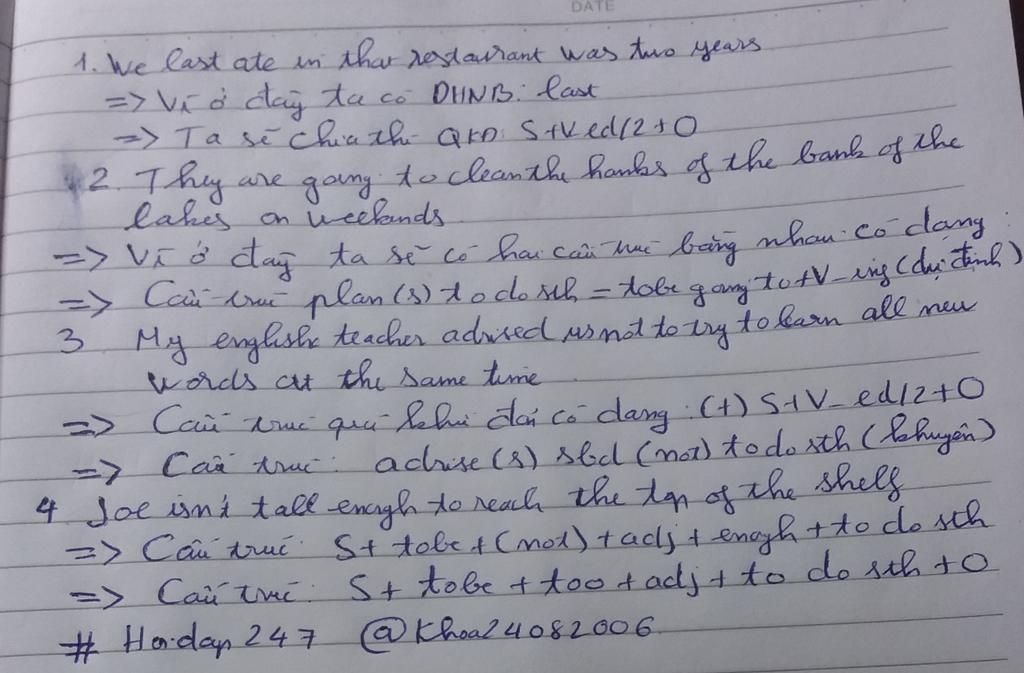 DATE
1. We last ate in that restaurant was two years
=> Vì ở đây ta có DHNB: last
=> Ta sẽ chia thì QKD: S+V ed/2 + O
2. They are going to clean the banks of the bank of the
lakes on weekends.
=> Vì ở đây ta sẽ có hai cấu trúc bằng nhau có dạng
=> Cấu trúc plan(s) to do sth = tobe going to + V_ing (dự định)
3 My english teacher advised us not to try to learn all new
words at the same time.
=> Cấu trúc quá khứ đơn có dạng: (+) S+V_ed/2+O
=> Cấu trúc: advise(s) sbd (not) to do sth (khuyên)
4 Joe isn't tall enogh to reach the top of the shelf
=> Cấu trúc: S + tobe + (not) + adj + enogh + to do sth
=> Cấu trúc: S + tobe + too + adj + to do sth + O
# Hoidap247 @Khoa24082006